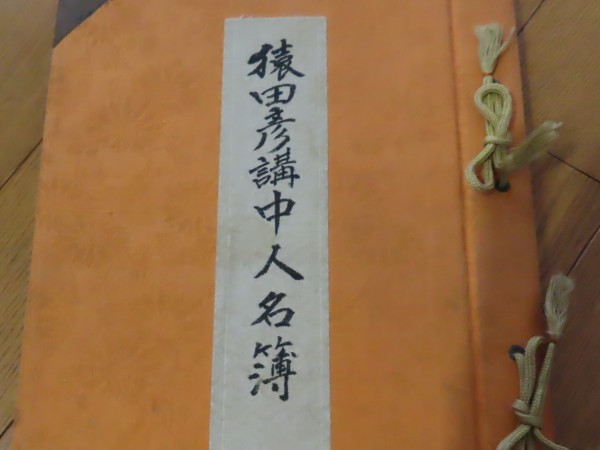 猿田彦講中人名簿